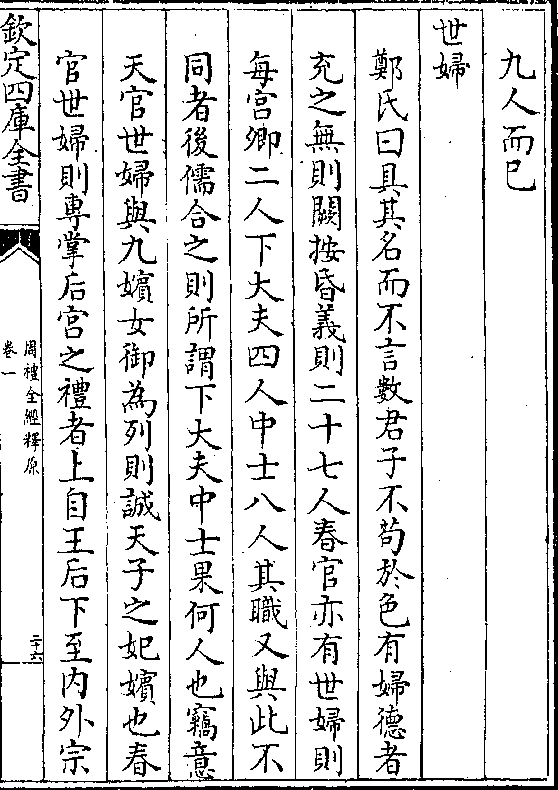 九人而已
世婦
鄭氏曰具其名而不言數君子不苟於色有婦德者
充之無則闕按昏義則二十七人春官亦有世婦則
每宮卿二人下大夫四人中士八人其職又與此不
同者後儒合之則所謂下大夫中士果何人也竊意
天官世婦與九嬪女御為列則誠天子之妃嬪也春
官世婦則專掌后宮之禮者上自王后下至内外宗
欽定四庫全書
周禮全經釋原
卷一
二十六